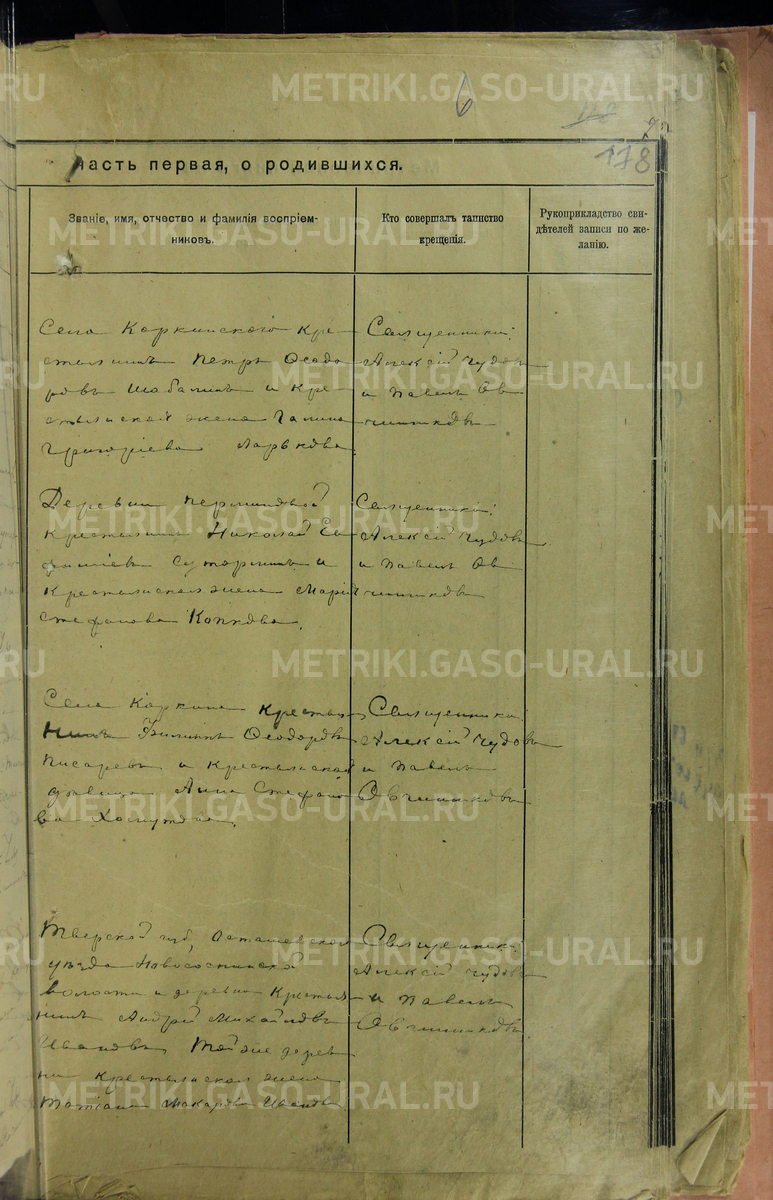 METRIKI.GASO-URAL.RU
6
7
178
Часть первая, о родившихся.
Званіе, имя, отчество и фамилія воспріем-
никовъ.
Кто совершалъ таинство
крещенія.
Рукоприкладство сви-
дѣтелей записи по же-
ланію.
Села Коркинского кре-
стьянинъ Петръ Ѳеодо
ровъ Шабалинъ и кре-
стьянская жена Галина
Григоріева
Священники:
Алексій Чудовъ
и Павелъ Ов
чинниковъ
Деревни
крестьянинъ Николай Ев
фиміевъ Суторминъ и
крестьянская жена Марія
Стефанова Копкова.
Священники:
Алексій Чудовъ
и Павелъ Ов
чинниковъ
Села Коркина крестья
нинъ Филиппъ Ѳеодоровъ
Писаревъ и крестьянская
дѣвица Анна Стефано
ва
Священники:
Алексій Чудовъ
и Павелъ
Овчинниковъ
Тверской губ, Осташевской
уезда
волости и деревни крестья
нинъ Андрей Михайловъ
Ивановъ, Той же дерев
ни крестьянская жена
Татіана Макарова Иванова
Священники:
Алексій Чудовъ
и Павелъ
Овчинниковъ